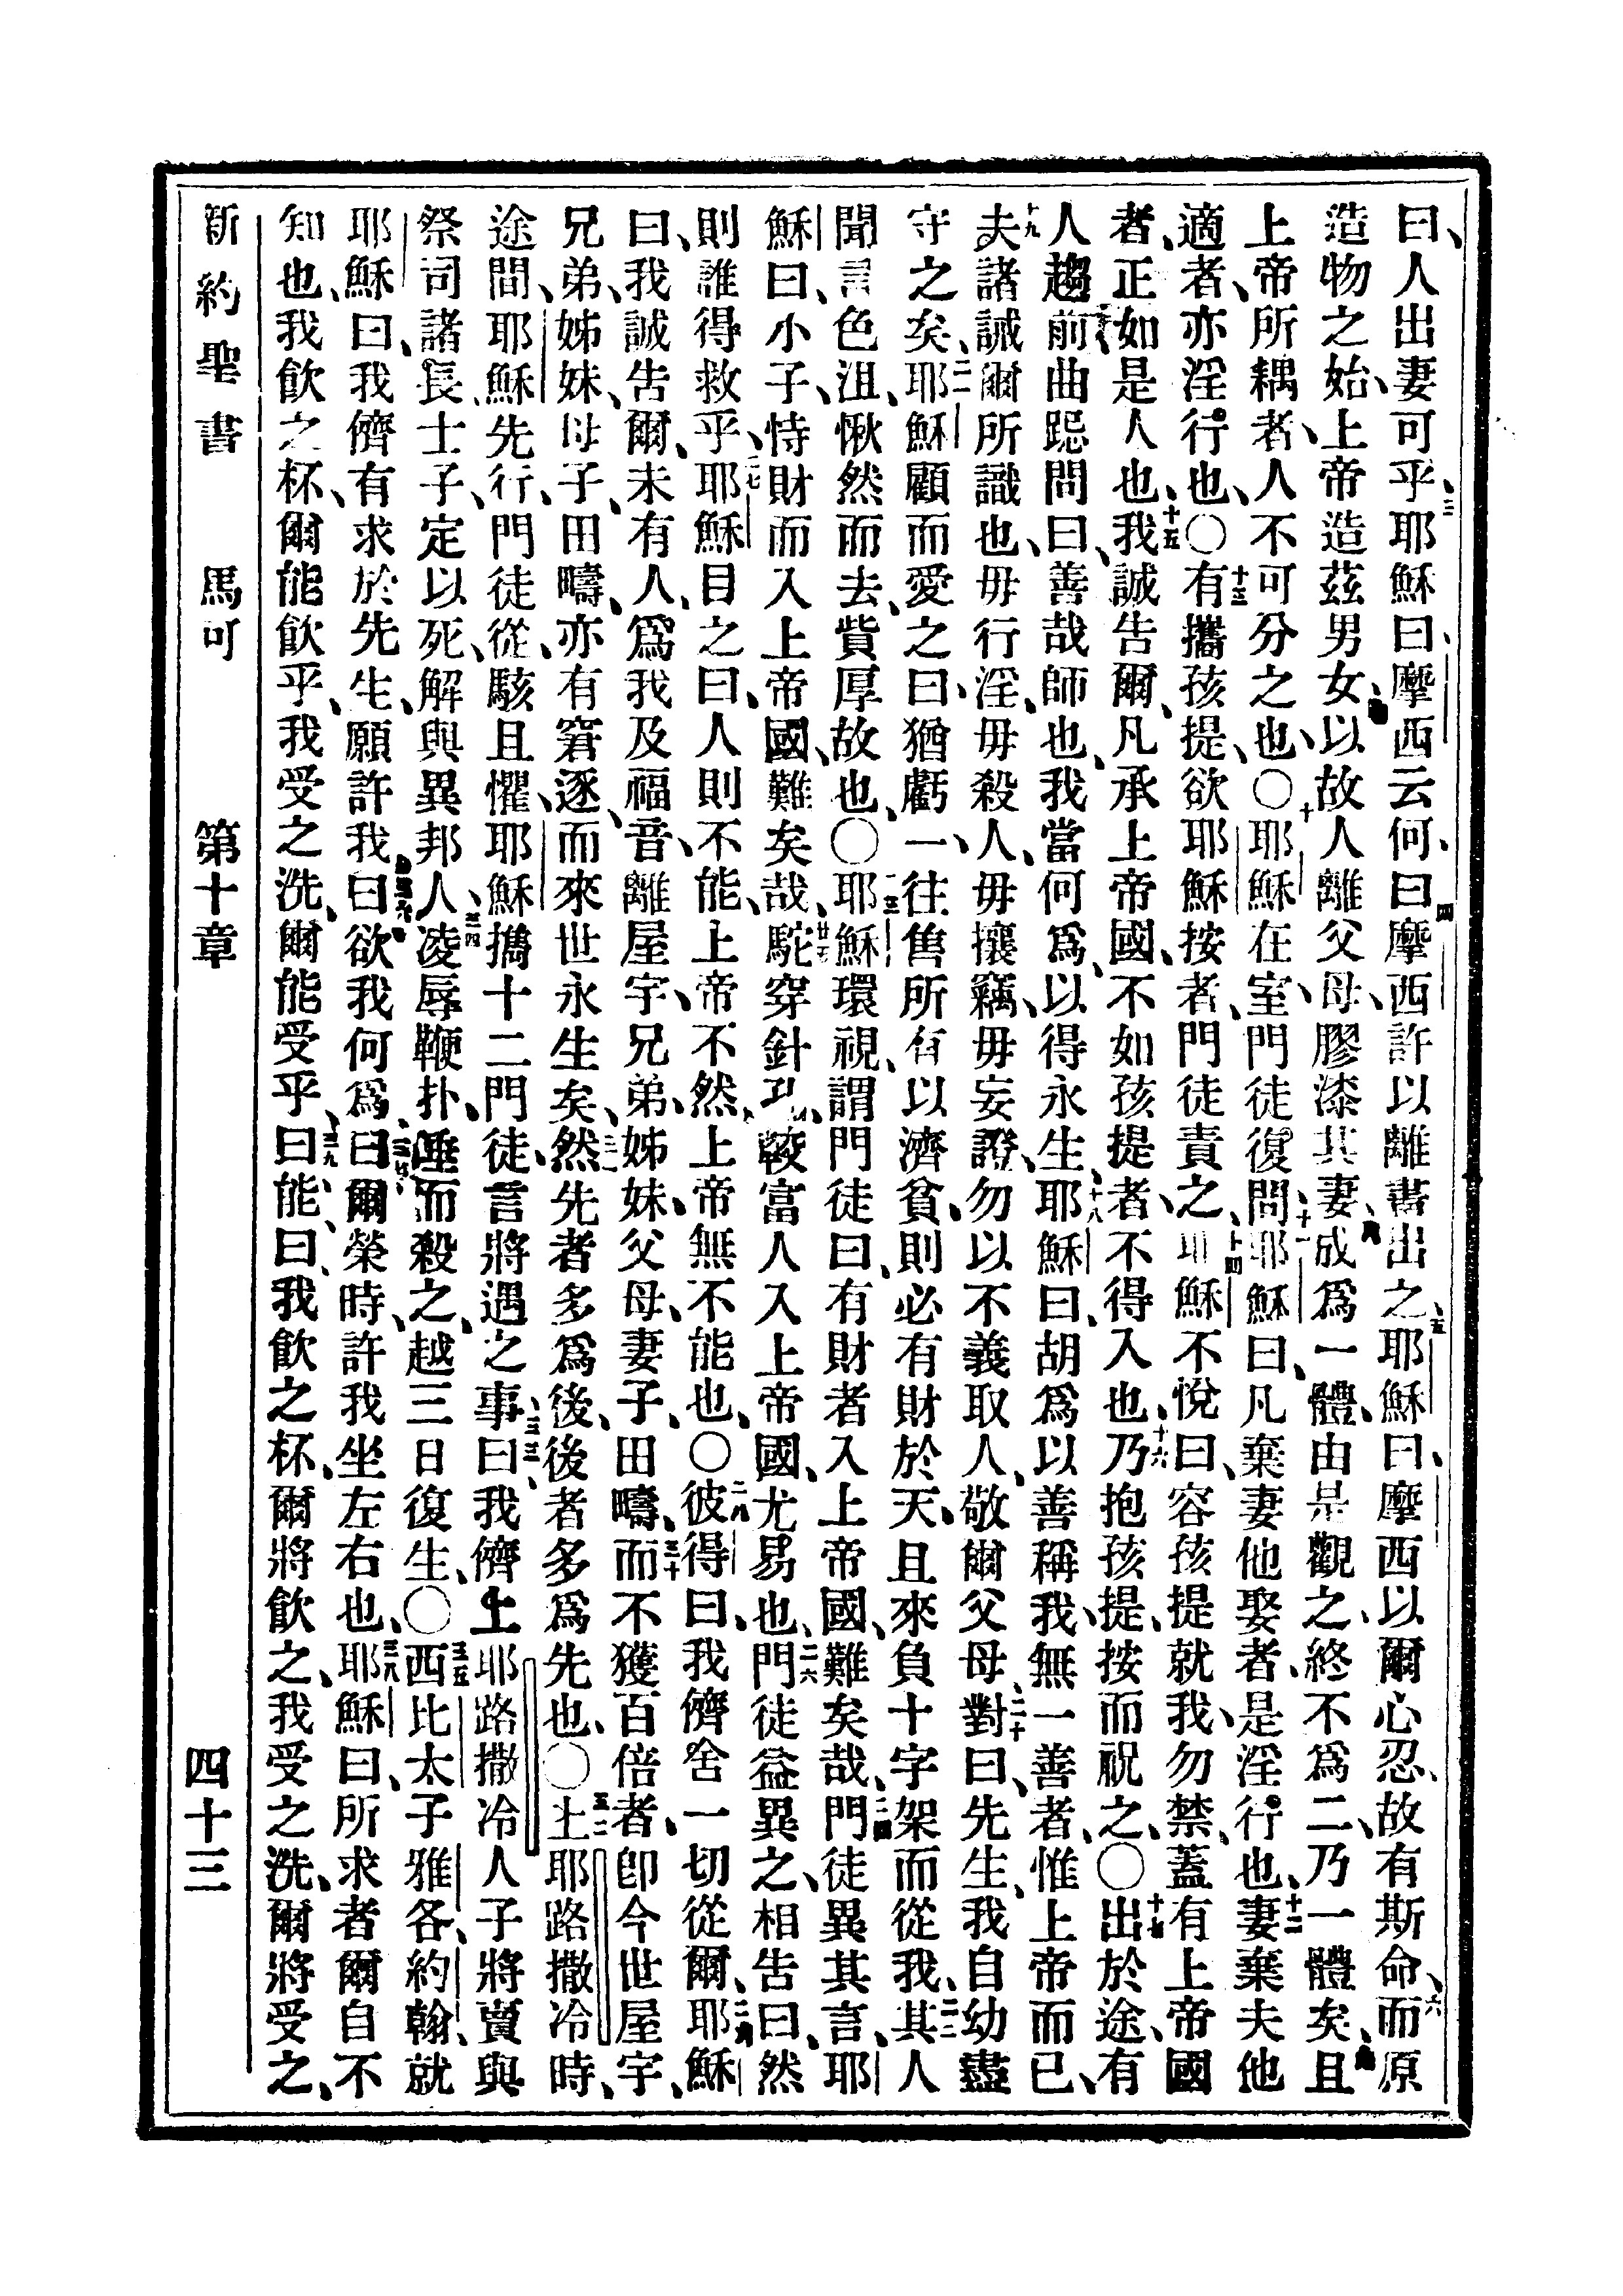 曰、人出妻可乎、三耶穌曰、摩西云何、四曰摩西許以離書出之、五耶穌曰、摩西以爾心忍、故有斯命、六而原
造物之始、上帝造茲男女、七以故人離父母、膠漆其妻、八成爲一體、由是觀之、終不爲二、乃一體矣、九且
上帝所耦者、人不可分之也、〇十耶穌在室、門徒復問、十一耶穌曰、凡棄妻他娶者、是淫行也、十二妻棄夫他
適者、亦淫行也、〇十三有攜孩提、欲耶穌按者、門徒責之、十四耶穌不悅曰、容孩提就我、勿禁、蓋有上帝國
者、正如是人也、十五我誠告爾、凡承上帝國、不如孩提者、不得入也、十六乃抱孩提、按而祝之、〇十七出於途、有
人趨前曲跽問曰、善哉師也、我當何爲、以得永生、十八耶穌曰、胡爲以善稱我、無一善者、惟上帝而已、
十九夫諸誡爾所識也、毋行淫、毋殺人、毋攘竊、毋妄證、勿以不義取人、敬爾父母、二十對曰、先生、我自幼盡
守之矣、二一耶穌顧而愛之曰、猶虧一、往售所有以濟貧、則必有財於天、且來負十字架而從我、二二其人
聞言色沮、愀然而去、貲厚故也、〇二三耶穌環視、謂門徒曰、有財者入上帝國、難矣哉、二四門徒異其言、耶
穌曰、小子、恃財而入上帝國、難矣哉、廿五駝穿針孔、較富人入上帝國、尤易也、二六門徒益異之、相告曰、然
則誰得救乎、二七耶穌目之曰、人則不能、上帝不然、上帝無不能也、〇二八彼得曰、我儕舍一切從爾、二九耶穌
曰、我誠告爾、未有人、爲我及福音、離屋宇、兄弟、姊妹、父母、妻子、田疇、三十而不獲百倍者、卽今世屋宇、
兄弟、姊妹、母子、田疇、亦有窘逐、而來世永生矣、三一然先者多爲後、後者多爲先也、〇三二上耶路撒冷時、
途間、耶穌先行、門徒從、駭且懼、耶穌攜十二門徒、言將遇之事、三三曰、我儕上耶路撒冷人子將賣與
祭司諸長、士子、定以死、解與異邦人、三四凌辱鞭扑、唾而殺之、越三日復生、〇三五西比太子雅各、約翰、就
耶穌曰、我儕有求於先生、願許我、三六曰欲我何爲、三七曰爾榮時、許我坐左右也、三八耶穌曰、所求者爾自不
知也、我飮之杯、爾能飮乎、我受之洗、爾能受乎、三九曰能、曰、我飮之杯、爾將飮之、我受之洗、爾將受之、
新約聖書　馬可　第十章　四十三